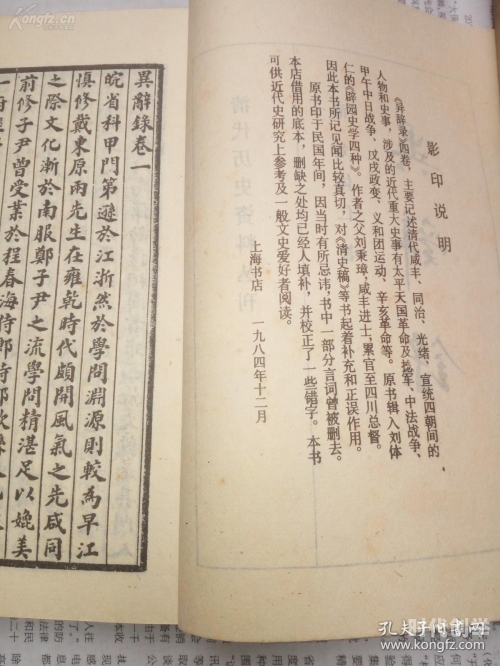 影印说明
《异辞录》四卷，主要记述清代咸丰、同治、光绪、宣统四朝间的
人物和史事，涉及的近代重大史事有太平天国革命及捻军、中法战争、
甲午中日战争、戊戌政变、义和团运动、辛亥革命等。原书辑入刘体
仁的《辟园史学四种》。作者之父刘秉璋，咸丰进士，累官至四川总督。
因此本书所记见闻比较真切，对《清史稿》等书起着补充和正误作用。
原书印于民国年间，因当时有所忌讳，书中一部分言词曾被删去。
本店借用的底本，删缺之处均已经人填补，并校正了一些错字。本书
可供近代史研究上参考及一般文史爱好者阅读。
上海书店 一九八四年十二月
清代历史资料丛刊
異辭錄卷一
皖省科甲門第遜於江浙然於學問淵源則較為早江
慎修戴東原兩先生在雍乾時代頗開風氣之先咸同
之際文化漸於南服鄭子尹之流學問精湛足以媲美
前修子尹曾受業於程春海侍郎侍郎歙
孔夫子旧书网
www.kongfz.com